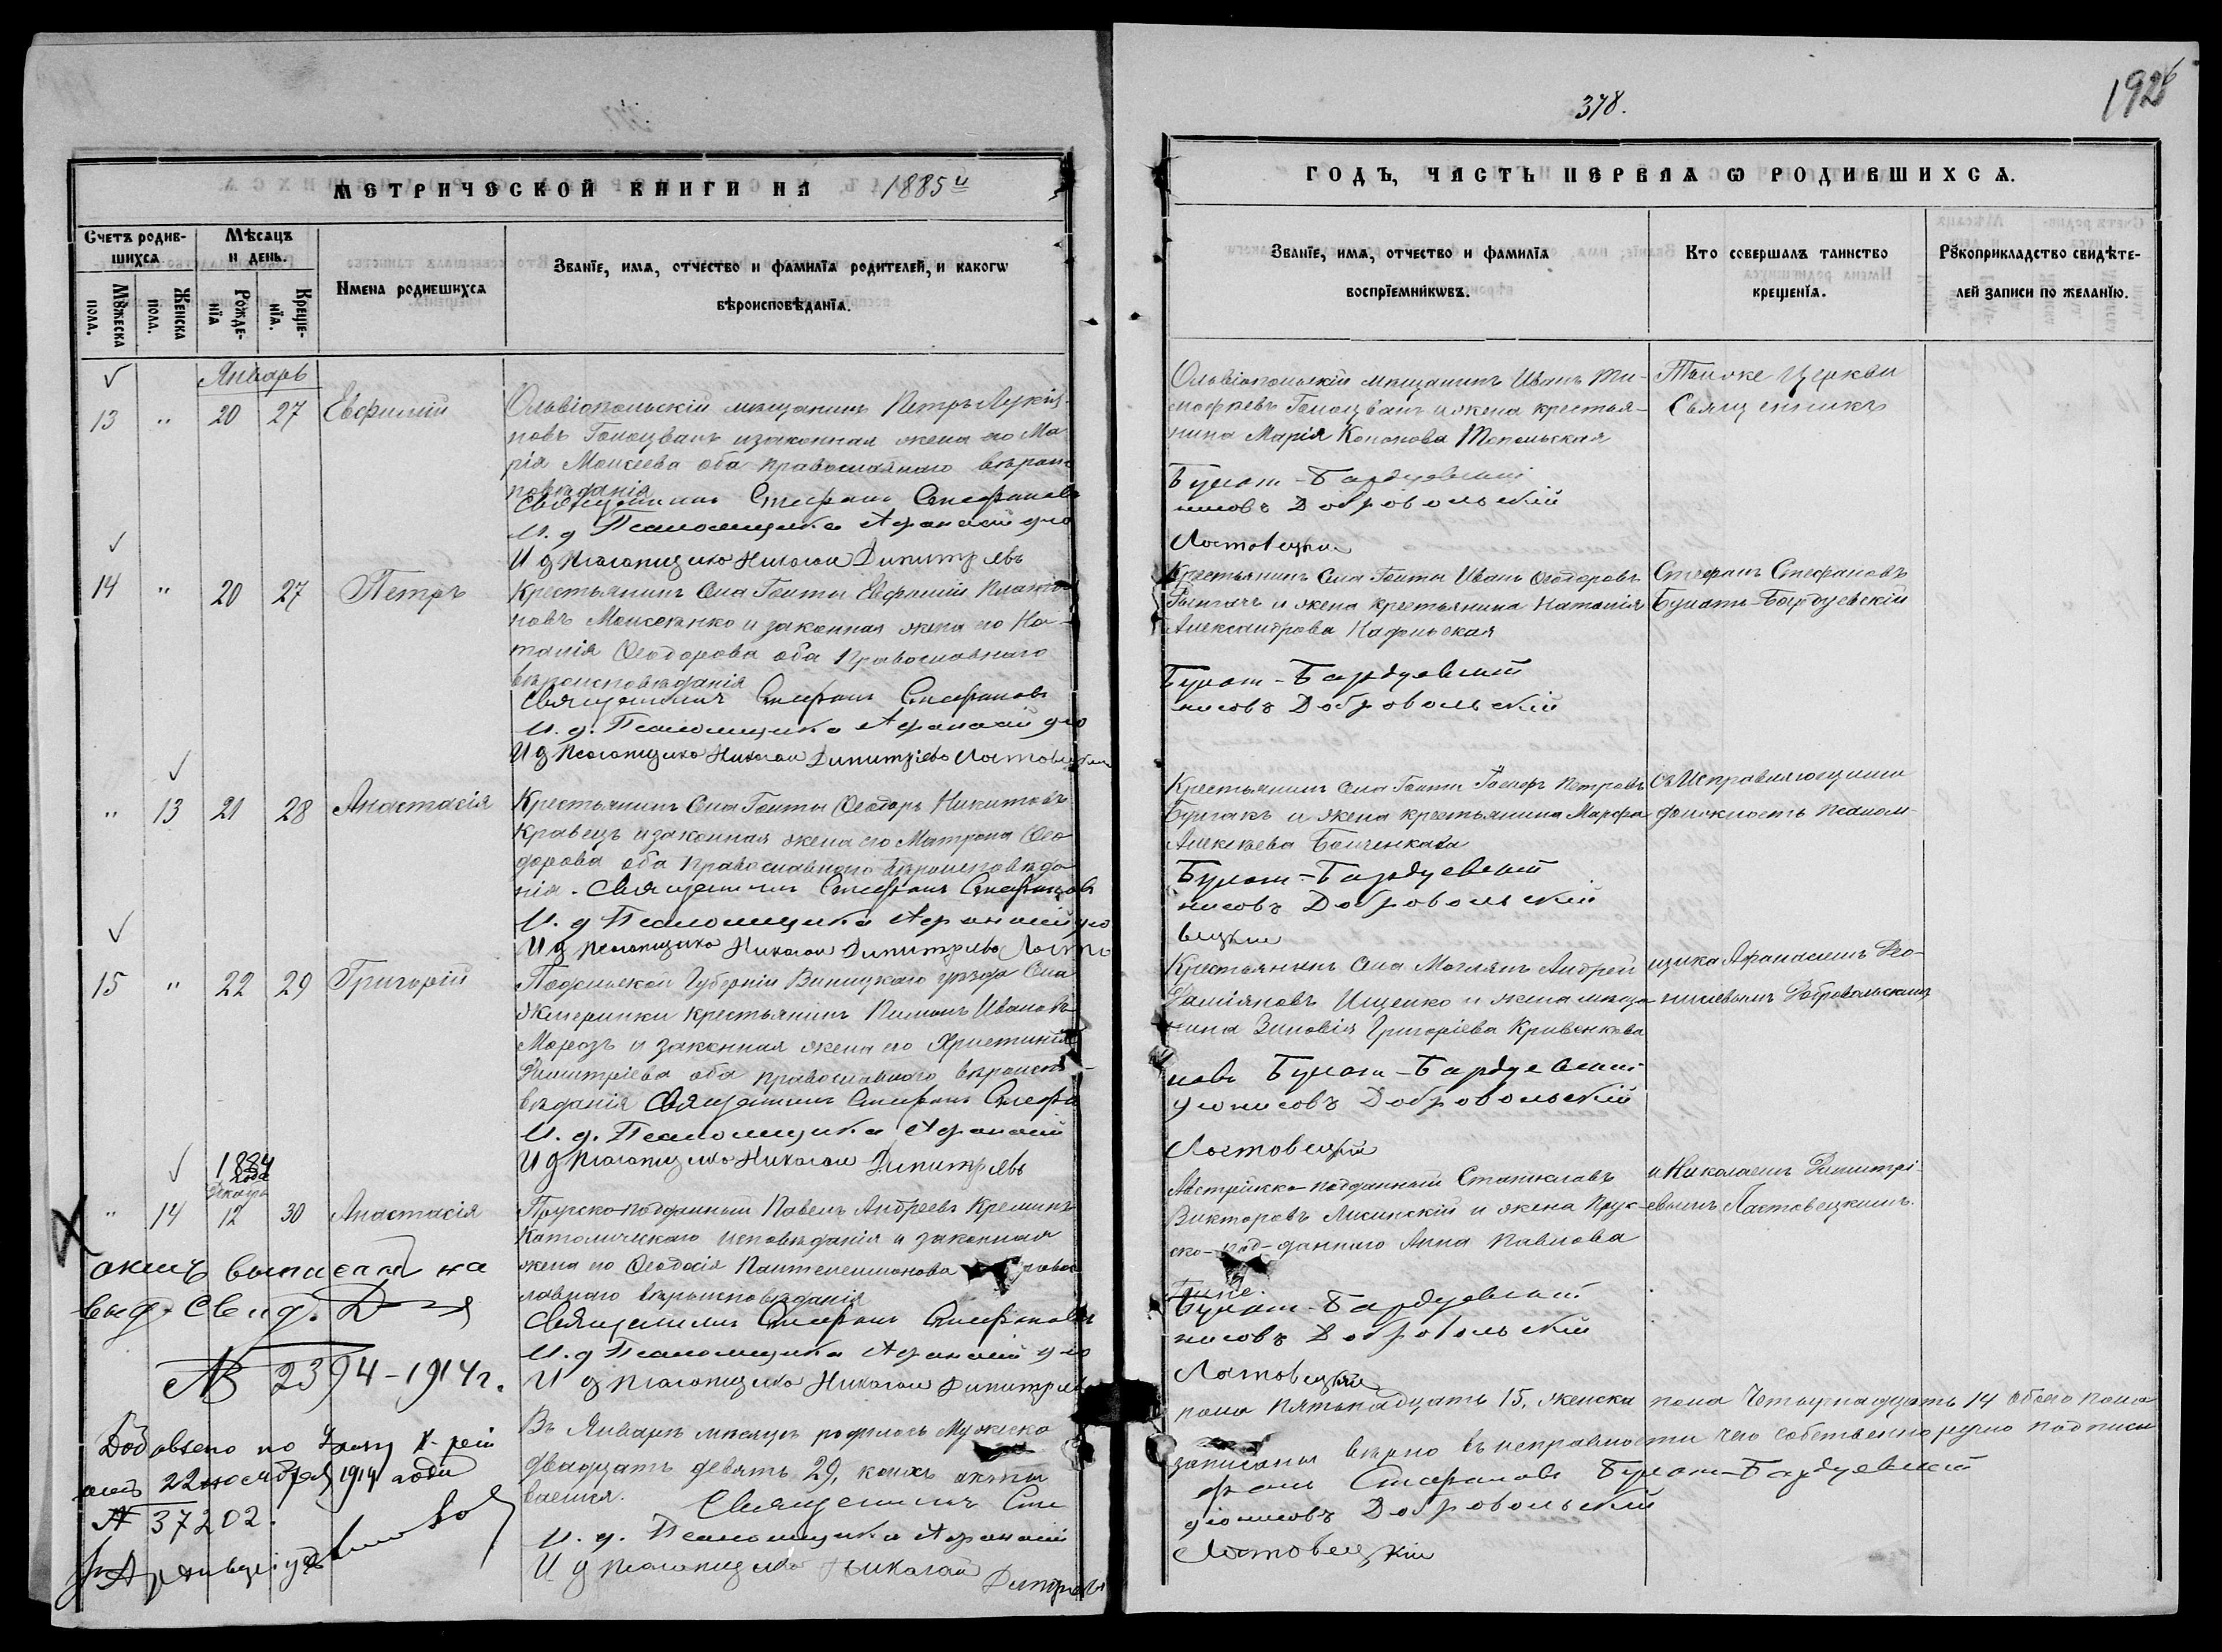 378.
1926
МЕТРИЧЕСКОЙ КНИГИ НА 1885й
ГОДЪ, ЧАСТЬ ПЕРВАЯ Ѡ РОДИВШИХСЯ.
Счетъ родив-
шихся
Мѣсяцъ
и день.
Мꙋжеска
пола.
Женска
пола.
Рожде-
нїя
Креще-
нїя.
Имена родившихся
Званїе, имя, отчество и фамилїя родителей, и какогѡ
вѣроисповѣданїя.
Званїе, имя, отчество и фамилїя
воспрїемникѡвъ.
Кто совершалъ таинство
крещенїя.
Рꙋкоприкладство свидѣте-
лей записи по желанїю.
Январь
13 " 20 27 Евфимій
Ольвіопольскій мѣщанинъ Петръ Лукія-
новъ Голоцванъ и законная жена его Ма
рія Моисеева оба православнаго вѣроис
повѣданія
Священникъ Стефанъ Стефановъ
И. д Псаломщика Афанасий дио
И д псаломщика Николай Димитріевъ
Ольвіопольскій мѣщанинъ Иванъ Ти-
мофѣевъ Голоцванъ и жена крестья-
нина Марія Кононова Топольская
Булат-Бардуевский
нисовъ Добровольскій
Ластовецкій
Тойже Церкви
Священникъ
14 " 20 27 Петръ
Крестьянинъ Села Голты Евфимій Плато
новъ Моисеенко и законная жена его На-
талія Ѳеодорова оба Православнаго
вѣроисповѣданія
Священникъ Стефанъ Стефановъ
И. д. Псаломщика Афанасий дио
И д псаломщика Николай Димитріевъ Ластовецкій
Крестьянинъ Села Голты Иванъ Ѳеодоровъ
и жена крестьянина Наталія
Александрова
Булат-Бардуевский
нисовъ Добровольскій
Стефанъ Стефановъ
Булатъ-Бардуевскій
" 13 21 28 Анастасія
Крестьянинъ Села Голты Ѳеодоръ Никитовъ
Кравецъ и законная жена его Матрона Ѳео
дорова оба Православнаго вѣроисповѣда
нія. Священникъ Стефанъ Стефановъ
И. д Псаломщика Афанасий дио
И д псаломщика Николай Димитріевъ Ласто
Крестьянинъ Села Голты Іосифъ Петровъ
и жена крестьянина Марфа
Алексѣева
Булат-Бардуевский
нисовъ Добровольскій
вецкій
съ Исправляющими
должность псалом-
15 " 22 29 Григорій
Подольской Губерніи Виницкаго уѣзда Села
Жмеринки крестьянинъ Пименъ Ивановъ
Морозъ и законная жена его Христинія
Димитріева оба православнаго вѣроиспо-
вѣданія Священникъ Стефанъ Стефа
И. д. Псаломщика Афанасий
И д псаломщика Николай Димитріевъ
Крестьянинъ Села Андрей
Даміяновъ Ищенко и жена мѣща-
нина Зиновія Григоріева Кривенкова
новъ Булат-Бардуевский
дионисовъ Добровольскій
Ластовецкій
щика Афанасіемъ Ді-
нисіевымъ Добровольскимъ
1884
года
Декабрь
" 14 12 30 Анастасія
Прусско-подданный Павелъ Андреевъ Кремингъ
Католическаго исповѣданія и законная
жена его Ѳеодосія Пантелеимонова правос
лавнаго вѣроисповѣданія
Священникъ Стефанъ Стефановъ
И. д Псаломщика Афанасий дио
И д псаломщика Николай Димитріевъ
Австрійско-подданный Станиславъ
Викторовъ Лисинскій и жена Прус-
ско-под-даннаго Анна Павлова
Булат-Бардуевский
нисовъ Добровольскій
Ластовецкій
и Николаемъ Димитрі-
евымъ Ластовецкимъ.
актъ выписанъ на
выд. свид.
№ 2394-1914г.
22 ноября 1914 года
№ 37202.
Въ Январѣ мѣсяцѣ родилось Мужеска
пола пятьнадцать 15, женска пола Четырнадцать 14 обоего пола
двадцать девять 29, коихъ акты
записаны вѣрно въ исправности чего собственноручно подписы
ваемся. Священникъ Сте
фанъ Стефановъ Булат-Бардуевский
И. д. Псаломщика Афанасий
дионисовъ Добровольскій
И д псаломщика Николай Димитріевъ
Ластовецкій